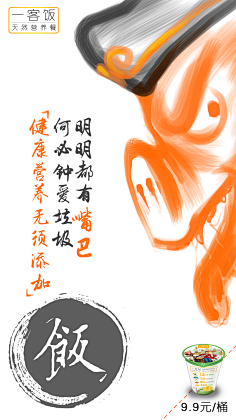 一客饭
天然营养餐
明明都有嘴巴
何必钟爱垃圾
「健康营养无须添加」
飯
9.9元/桶